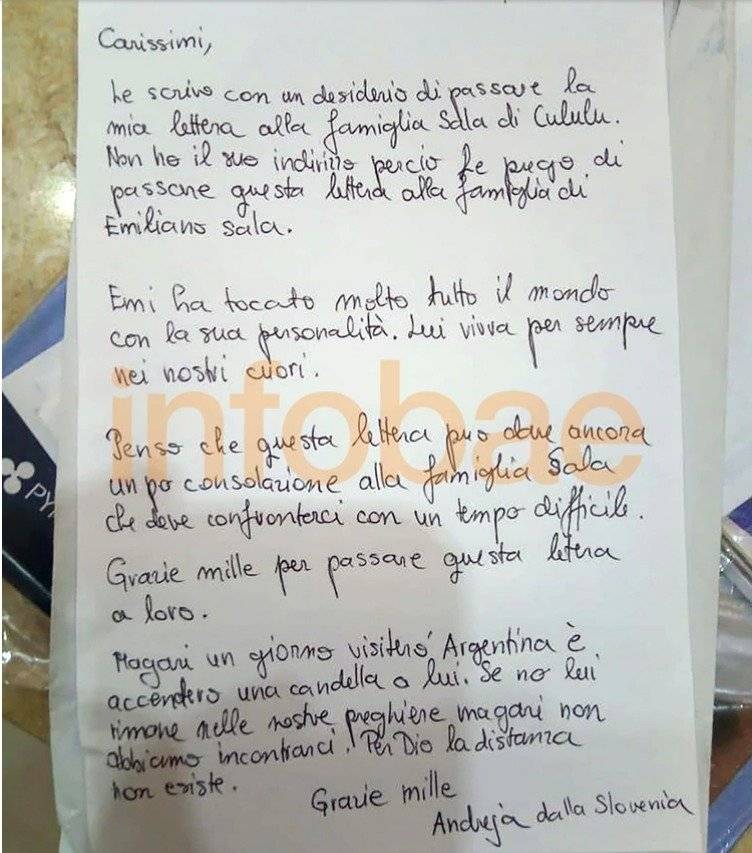 Carissimi,
Le scrivo con un desiderio di passare la
mia lettera alla famiglia Sala di Cululu.
Non ho il suo indirizzo percio Le prego di
passare questa lettera alla famiglia di
Emiliano Sala.
Emi ha tocato molto tutto il mondo
con la sua personalità. Lui vivva per sempre
nei nostri cuori.
infobae
Penso che questa lettera puo dare ancora
un po consolazione alla famiglia Sala
che deve confrontarci con un tempo difficile.
Grazie mille per passare questa lettera
a loro.
Magari un giorno visiterò Argentina è
accenderò una candella a lui. Se no lui
rimane nelle nostre preghiere magari non
abbiamo incontranci. Per Dio la distanza
non existe.
Grazie mille
Andreja dalla Slovenia
PY